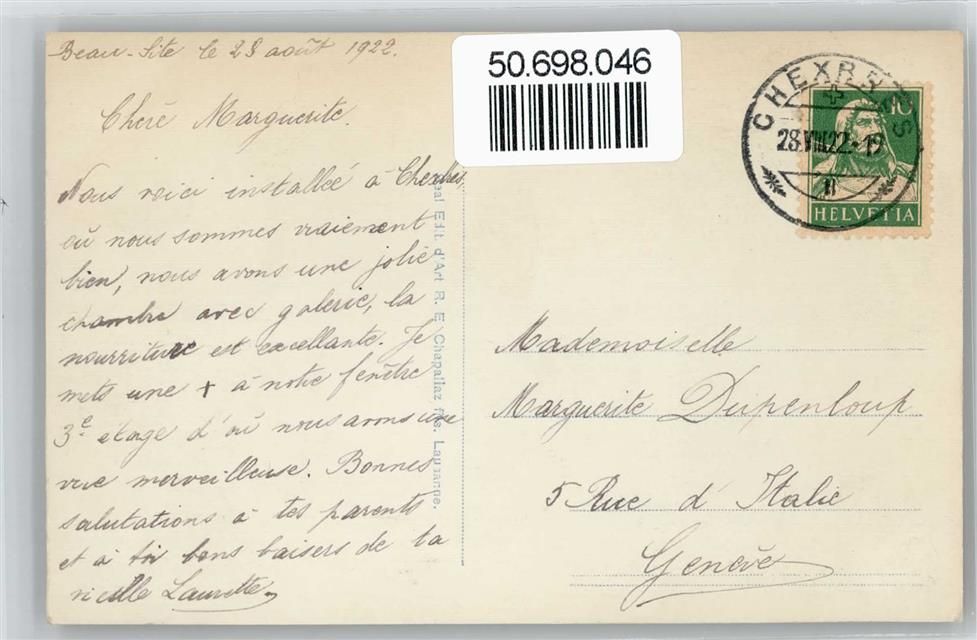 Beau-Site le 28 août 1922.
Chère Marguerite.
Nous voici installée à Chexbres
où nous sommes vraiement
bien, nous avons une jolie
chambre avec galerie, la
nourriture est excellante. Je
mets une + à notre fenêtre
3e etage d'où nous avons une
vue merveilleuse. Bonnes
salutations à tes parents
et à toi bons baisers de ta
vieille Laurette
Edit. d'Art R. E. Chapallaz fils. Lausanne.
50.698.046
CHEXBRES
28.VIII.22.-19
II
10
HELVETIA
Mademoiselle
Marguerite Dupenloup
5 Rue d'Italie
Genève